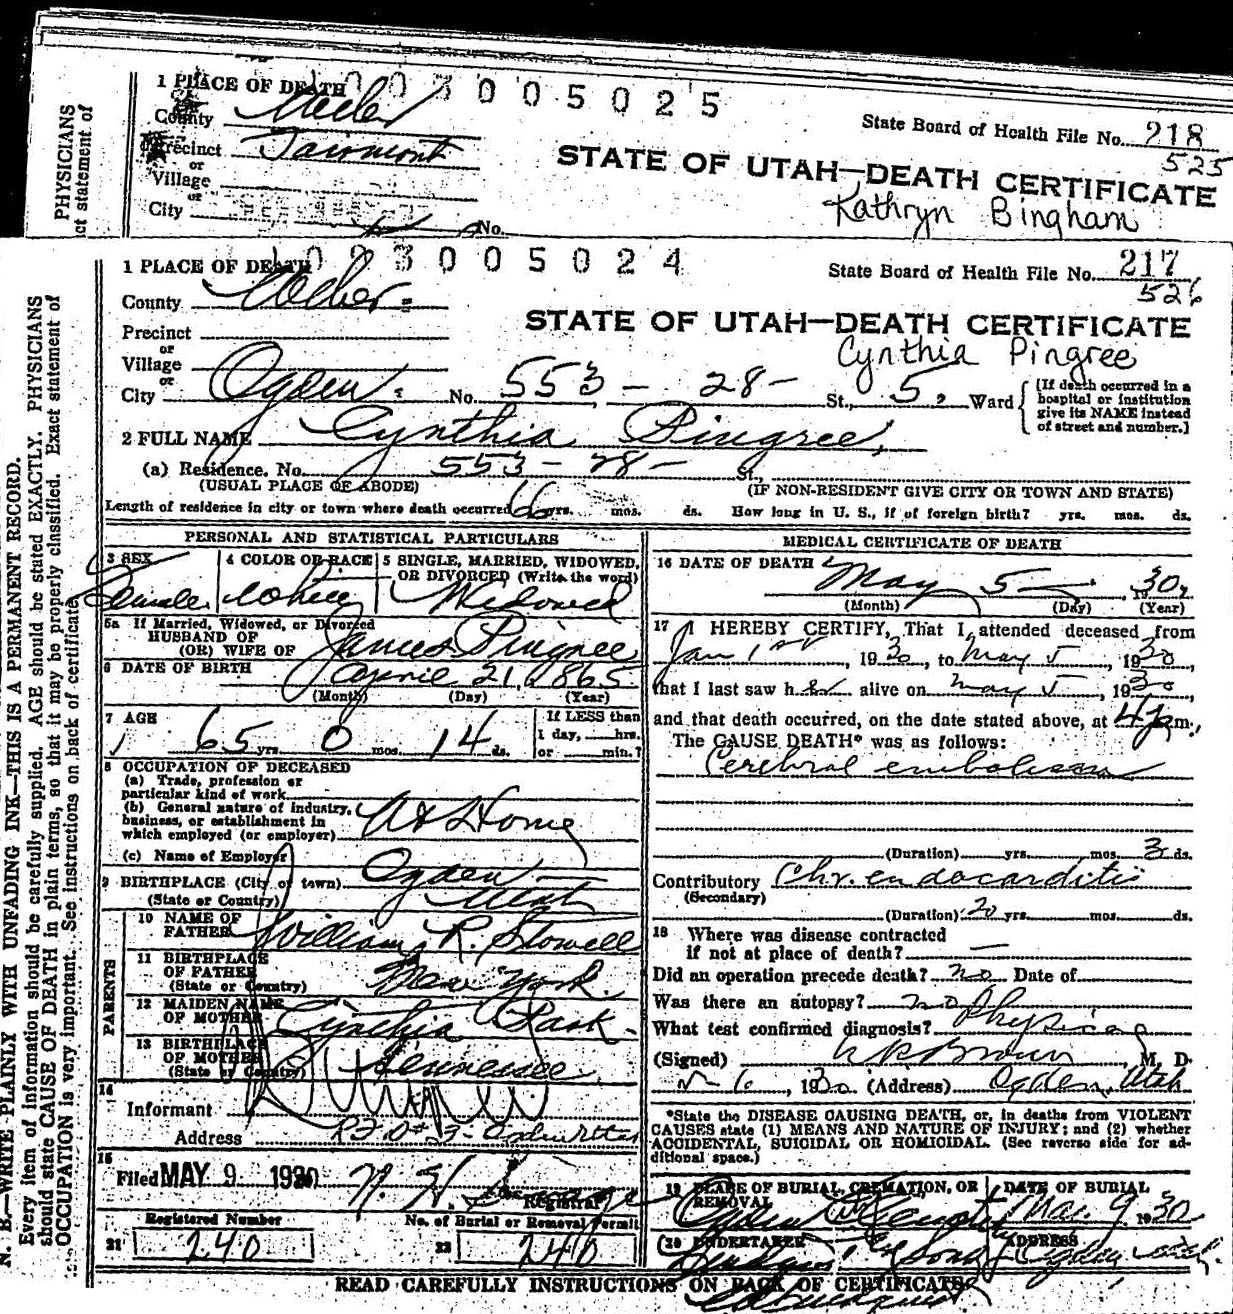 PHYSICIANS
ct statement of
1 PLACE OF DEATH 3 0 0 5 0 2 5
County Weber
State Board of Health File No. 218
525
Precinct
or
Village
or
City
No.
STATE OF UTAH—DEATH CERTIFICATE
Kathryn Bingham
N. B.—WRITE PLAINLY WITH UNFADING INK—THIS IS A PERMANENT RECORD.
Every item of information should be carefully supplied. AGE should be stated EXACTLY. PHYSICIANS
should state CAUSE OF DEATH in plain terms, so that it may be properly classified. Exact statement of
OCCUPATION is very important. See instructions on back of certificate.
1 PLACE OF DEATH 3 0 0 5 0 2 4
State Board of Health File No. 217
526
County Weber
STATE OF UTAH—DEATH CERTIFICATE
Cynthia Pingree
Precinct
or
Village
or
City Ogden No. 553 - 28 - St., 5, Ward
(If death occurred in a
hospital or institution
give its NAME instead
of street and number.)
2 FULL NAME Cynthia Pingree,
(a) Residence. No. 553 - 28 - St.,
(USUAL PLACE OF ABODE) (IF NON-RESIDENT GIVE CITY OR TOWN AND STATE)
Length of residence in city or town where death occurred 66 yrs. mos. ds. How long in U. S., if of foreign birth? yrs. mos. ds.
PERSONAL AND STATISTICAL PARTICULARS
3 SEX Female
4 COLOR OR RACE White
5 SINGLE, MARRIED, WIDOWED,
OR DIVORCED (Write the word)
Widowed
5a If Married, Widowed, or Divorced
HUSBAND OF
(OR) WIFE OF James Pingree
6 DATE OF BIRTH April 21, 1865
(Month) (Day) (Year)
7 AGE
65 yrs. 0 mos. 14 ds.
If LESS than
1 day, hrs.
or min.?
8 OCCUPATION OF DECEASED
(a) Trade, profession or
particular kind of work
(b) General nature of industry,
business, or establishment in
which employed (or employer) At Home
(c) Name of Employer
9 BIRTHPLACE (City or town) Ogden
(State or Country) Utah
PARENTS
10 NAME OF
FATHER William R. Stowell
11 BIRTHPLACE
OF FATHER
(State or Country) New York.
12 MAIDEN NAME
OF MOTHER Cynthia Park
13 BIRTHPLACE
OF MOTHER
(State or Country) Tennessee
14
Informant
Address
15
Filed MAY 9 1930
Registrar
Registered Number
21 240
No. of Burial or Removal Permit
22 240
MEDICAL CERTIFICATE OF DEATH
16 DATE OF DEATH May 5 1930,
(Month) (Day) (Year)
17 I HEREBY CERTIFY, That I attended deceased from
Jan 1st, 1930, to May 5, 1930,
that I last saw her alive on May 5, 1930,
and that death occurred, on the date stated above, at 4 am.,
The CAUSE DEATH* was as follows:
Cerebral embolism
(Duration) yrs. mos. 3 ds.
Contributory Chr. endocarditis
(Secondary)
(Duration) 20 yrs. mos. ds.
18 Where was disease contracted
if not at place of death? —
Did an operation precede death? no Date of
Was there an autopsy? no
What test confirmed diagnosis? Physical
(Signed) Brown, M. D.
6, 1930 (Address) Ogden, Utah
*State the DISEASE CAUSING DEATH, or, in deaths from VIOLENT
CAUSES state (1) MEANS AND NATURE OF INJURY; and (2) whether
ACCIDENTAL, SUICIDAL OR HOMICIDAL. (See reverse side for ad-
ditional space.)
19 PLACE OF BURIAL, CREMATION, OR
REMOVAL
Ogden City Cemetery
DATE OF BURIAL
May 9 1930
20 UNDERTAKER
ADDRESS
Ogden Utah
READ CAREFULLY INSTRUCTIONS ON BACK OF CERTIFICATE